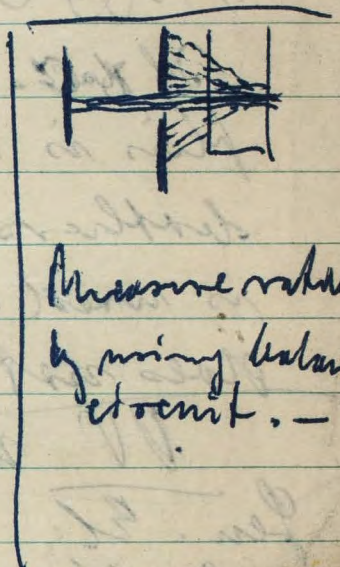 Measure ratio
by using balan
circuit. –